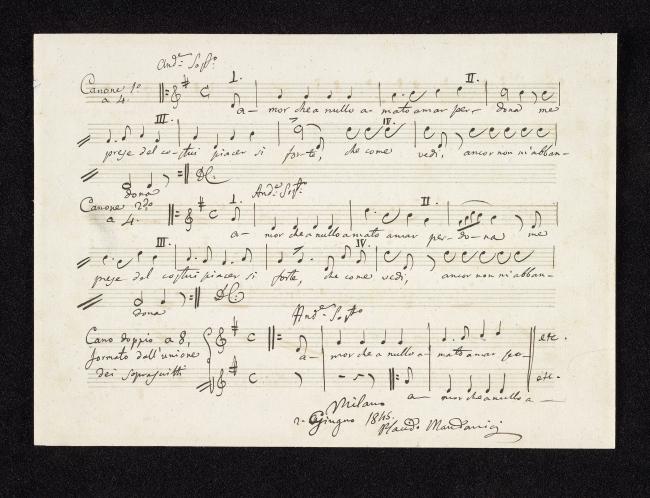 And.e Sost.o
Canone 1o I. II.
a 4. a- mor che a nullo a- mato amar per- dona me
III. IV.
prese del co- stui piacer si for-te, che come vedi, ancor non m'abban-
dona D.C.
Canone 2do And.e Sost.o I. II.
a 4. a- mor che a nullo a mato amar per- do- na me
III. IV.
prese del costui piacer si forte, che come vedi, ancor non m'abban-
dona D.C.
And.e Sost.o
Cano doppio a 8, etc.
formato dall'unione a- mor che a nullo a- mato amar pe-
dei sopra scritti etc.
a- mor che a nullo a-
Milano
2. Giugno 1845.
Placido Mandanici